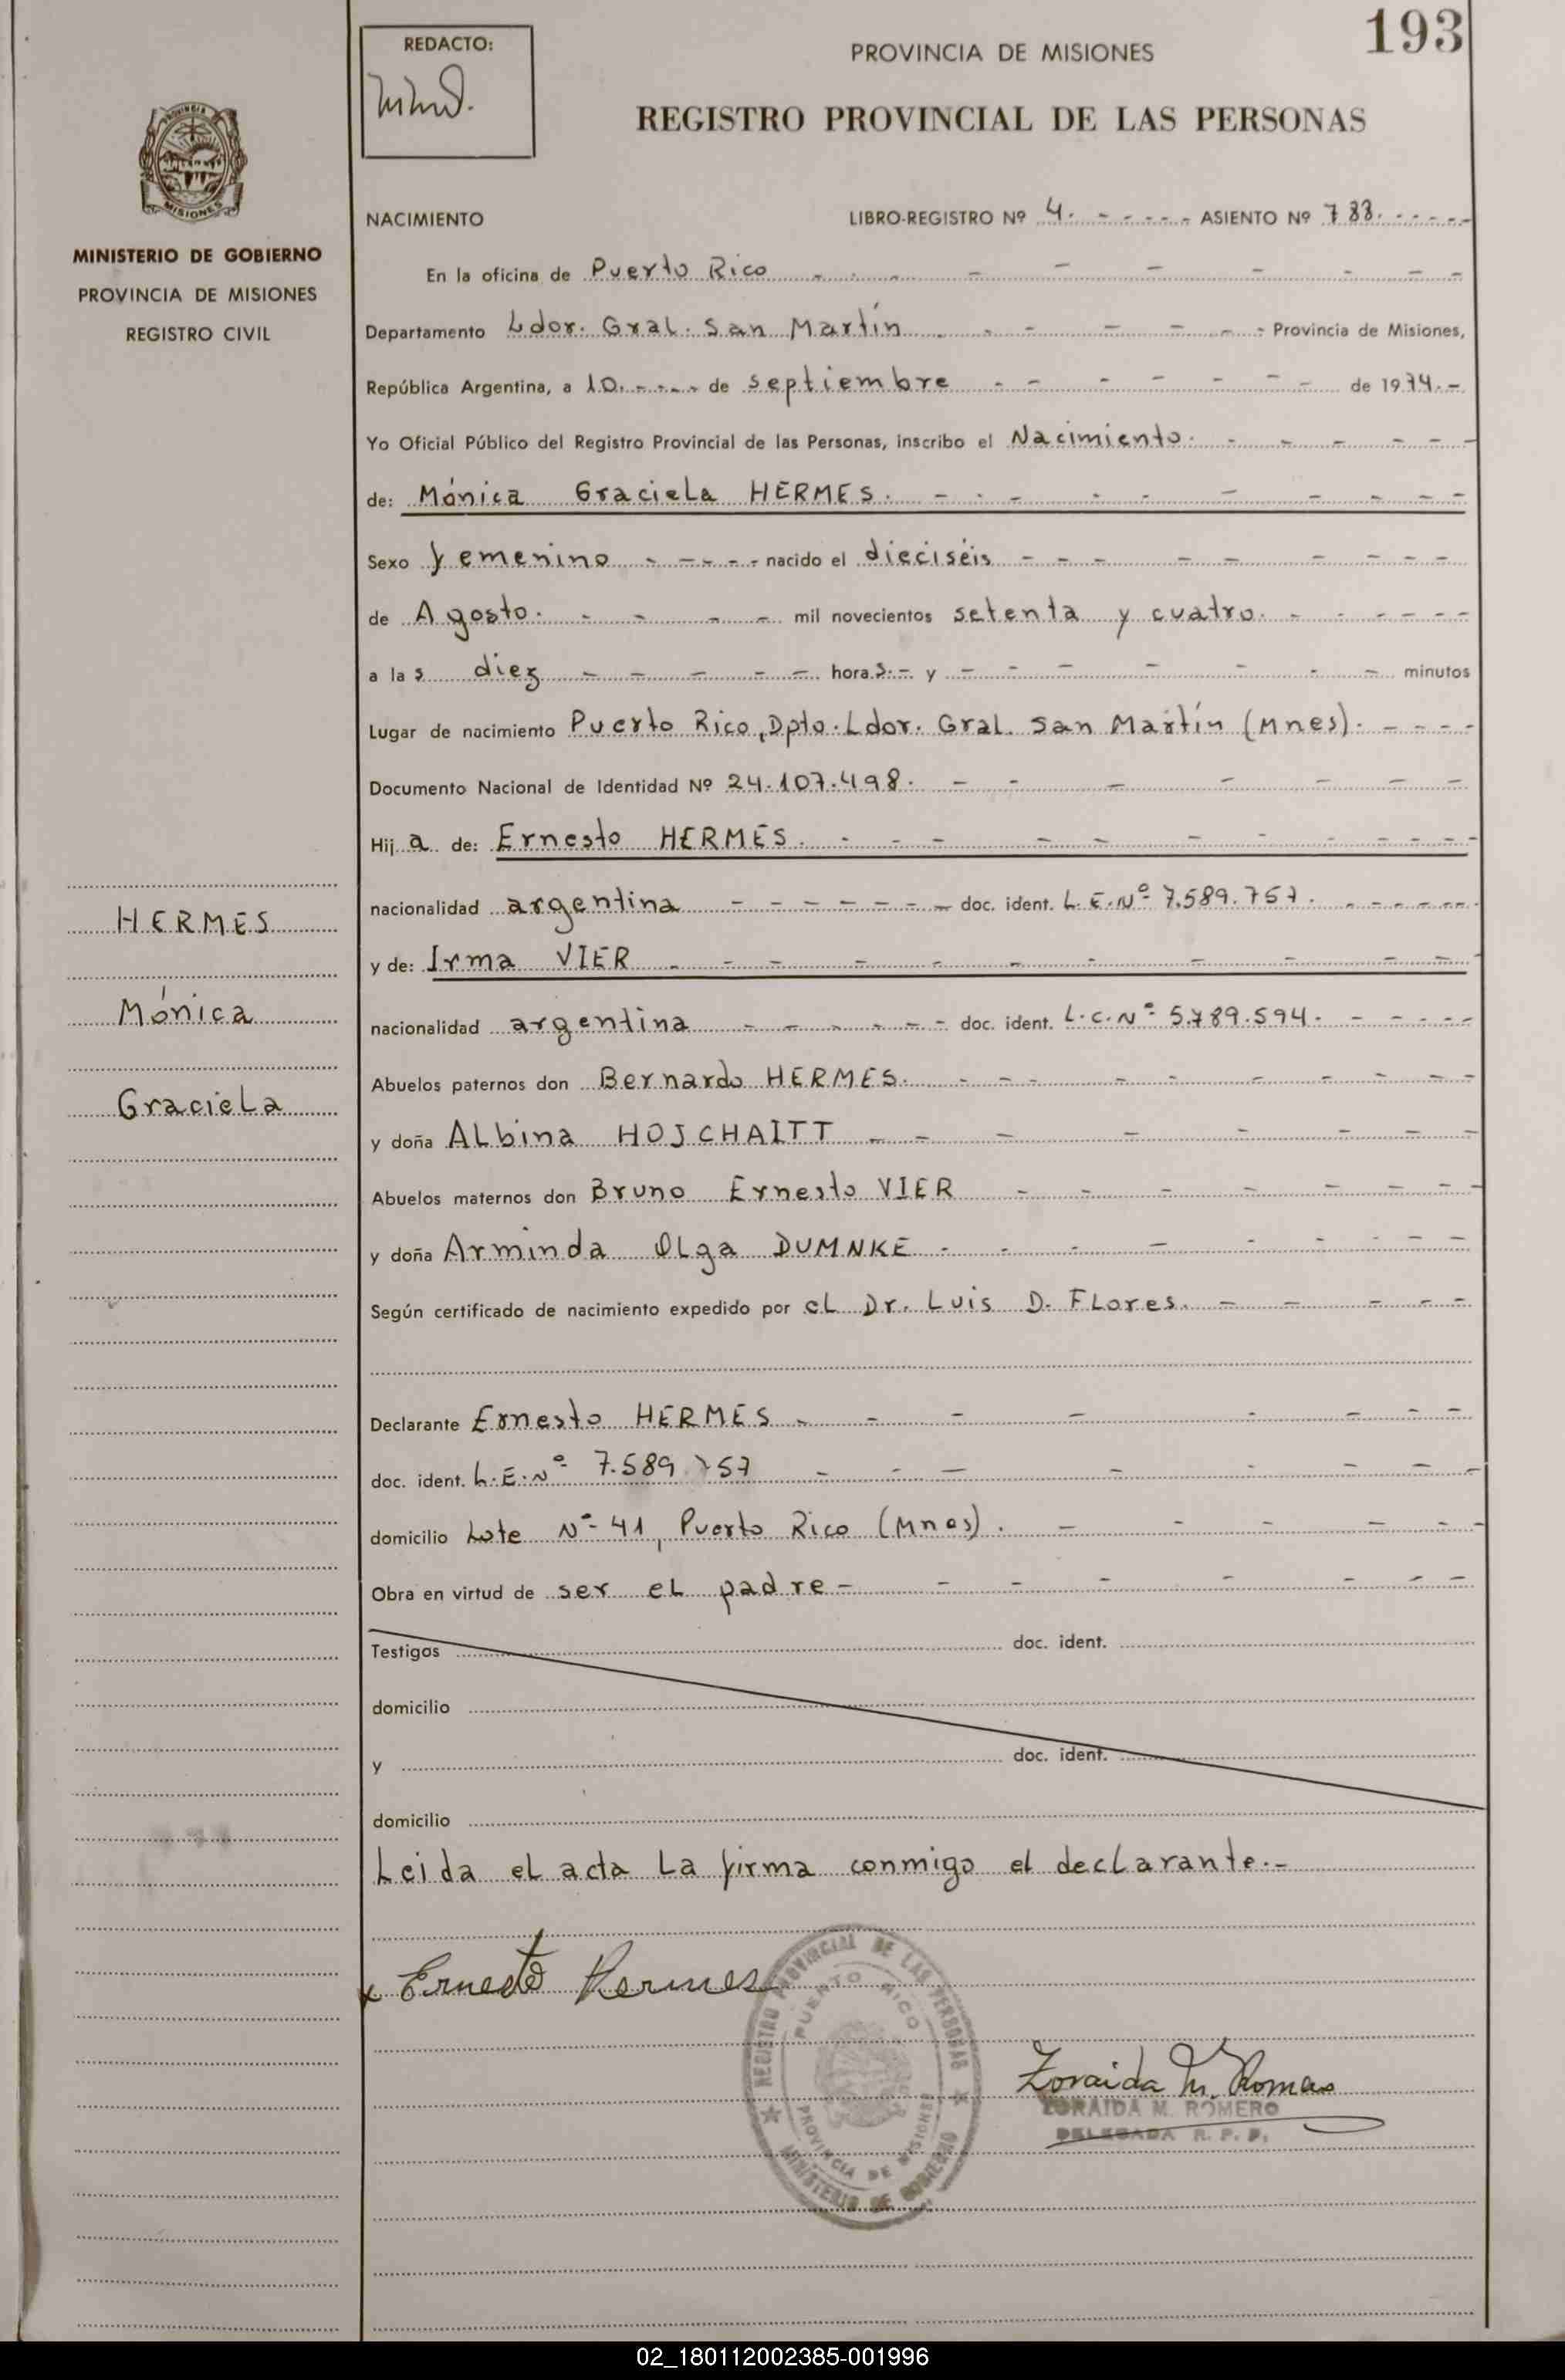 193
REDACTO:
PROVINCIA DE MISIONES
REGISTRO PROVINCIAL DE LAS PERSONAS
MISIONES
MINISTERIO DE GOBIERNO
PROVINCIA DE MISIONES
REGISTRO CIVIL
NACIMIENTO LIBRO-REGISTRO Nº 4. ASIENTO Nº 733.
En la oficina de Puerto Rico
Departamento Ldor. Gral. San Martín Provincia de Misiones,
República Argentina, a 10. de septiembre de 1974.-
Yo Oficial Público del Registro Provincial de las Personas, inscribo el Nacimiento.
de: Mónica Graciela HERMES.
Sexo femenino nacido el dieciséis
de Agosto. mil novecientos setenta y cuatro.
a las diez horas.- y minutos
Lugar de nacimiento Puerto Rico, Dpto. Ldor. Gral. San Martín (Mnes).
Documento Nacional de Identidad Nº 24.107.498.
Hija de: Ernesto HERMES.
nacionalidad argentina doc. ident. L.E.Nº 7.589.757.
y de: Irma VIER
nacionalidad argentina doc. ident. L.C.Nº 5.789.594.
Abuelos paternos don Bernardo HERMES.
y doña Albina HOJCHAITT
Abuelos maternos don Bruno Ernesto VIER
y doña Arminda Olga DUMNKE
Según certificado de nacimiento expedido por el Dr. Luis D. Flores.
Declarante Ernesto HERMES
doc. ident. L.E.Nº 7.589.757
domicilio Lote Nº 41, Puerto Rico (Mnes).
Obra en virtud de ser el padre
Testigos doc. ident.
domicilio
y doc. ident.
domicilio
Leida el acta la firma conmigo el declarante.-
HERMES
Mónica
Graciela
x Ernesto Hermes
REGISTRO PROVINCIAL DE LAS PERSONAS
PUERTO RICO
PROVINCIA DE MISIONES
MINISTERIO DE GOBIERNO
Zoraida M. Romero
ZORAIDA M. ROMERO
DELEGADA R. P. P.
02_180112002385-001996